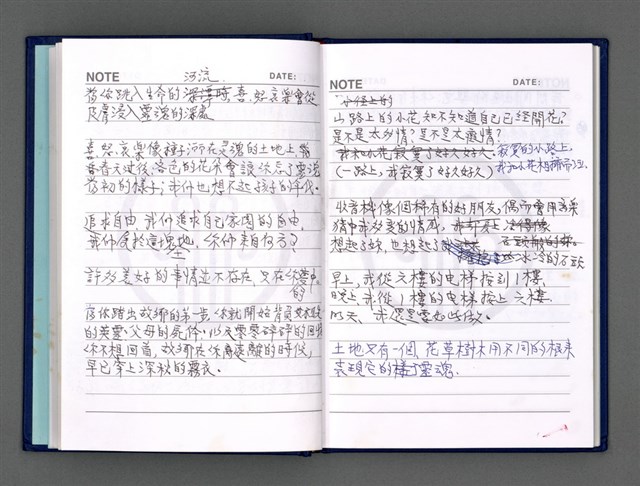 NOTE 河流. DATE:
當你跳入生命的深潭時,喜、怒、哀、樂會從
皮膚浸入靈魂的深處
喜、怒、哀、樂像種子灑在靈魂的土地上,當
春天來後,落色的花朵會讓你忘了靈魂
最初的樣子;我們也想不起孩子的年代。
追求自由,我們追求自己家園的自由,
我們受於這塊地,你們來自何方?
許多美好的事情並不存在,只在你夢中
的
在你踏出故鄉的第一步,你就開始背負
的英靈、父母的死体。以及零零碎碎的回憶
你不想回首,故鄉在你離遠離的時候,
早已穿上深秋的霧衣。
NOTE DATE:
小徑上的
山路上的小花,知不知道自己已經開花?
是不是太多情?是不是太癡情?
我和小花寂寞了好久好久. 寂寞的小路上.
(一路上,我寂寞了好久好久)我和小花相擁而泣.
收音機像個稀有的好朋友,偶而會用音樂
猜中我少衷的情感,
想起女妹,也想起了 冰冷的石頭
早上,我從六樓的电梯按到1樓,
晚上我從1樓的电梯按上六樓,
明天,我還是要如此做。
土地只有一個,花草樹木用不同的根來
表現它的樣了靈魂.